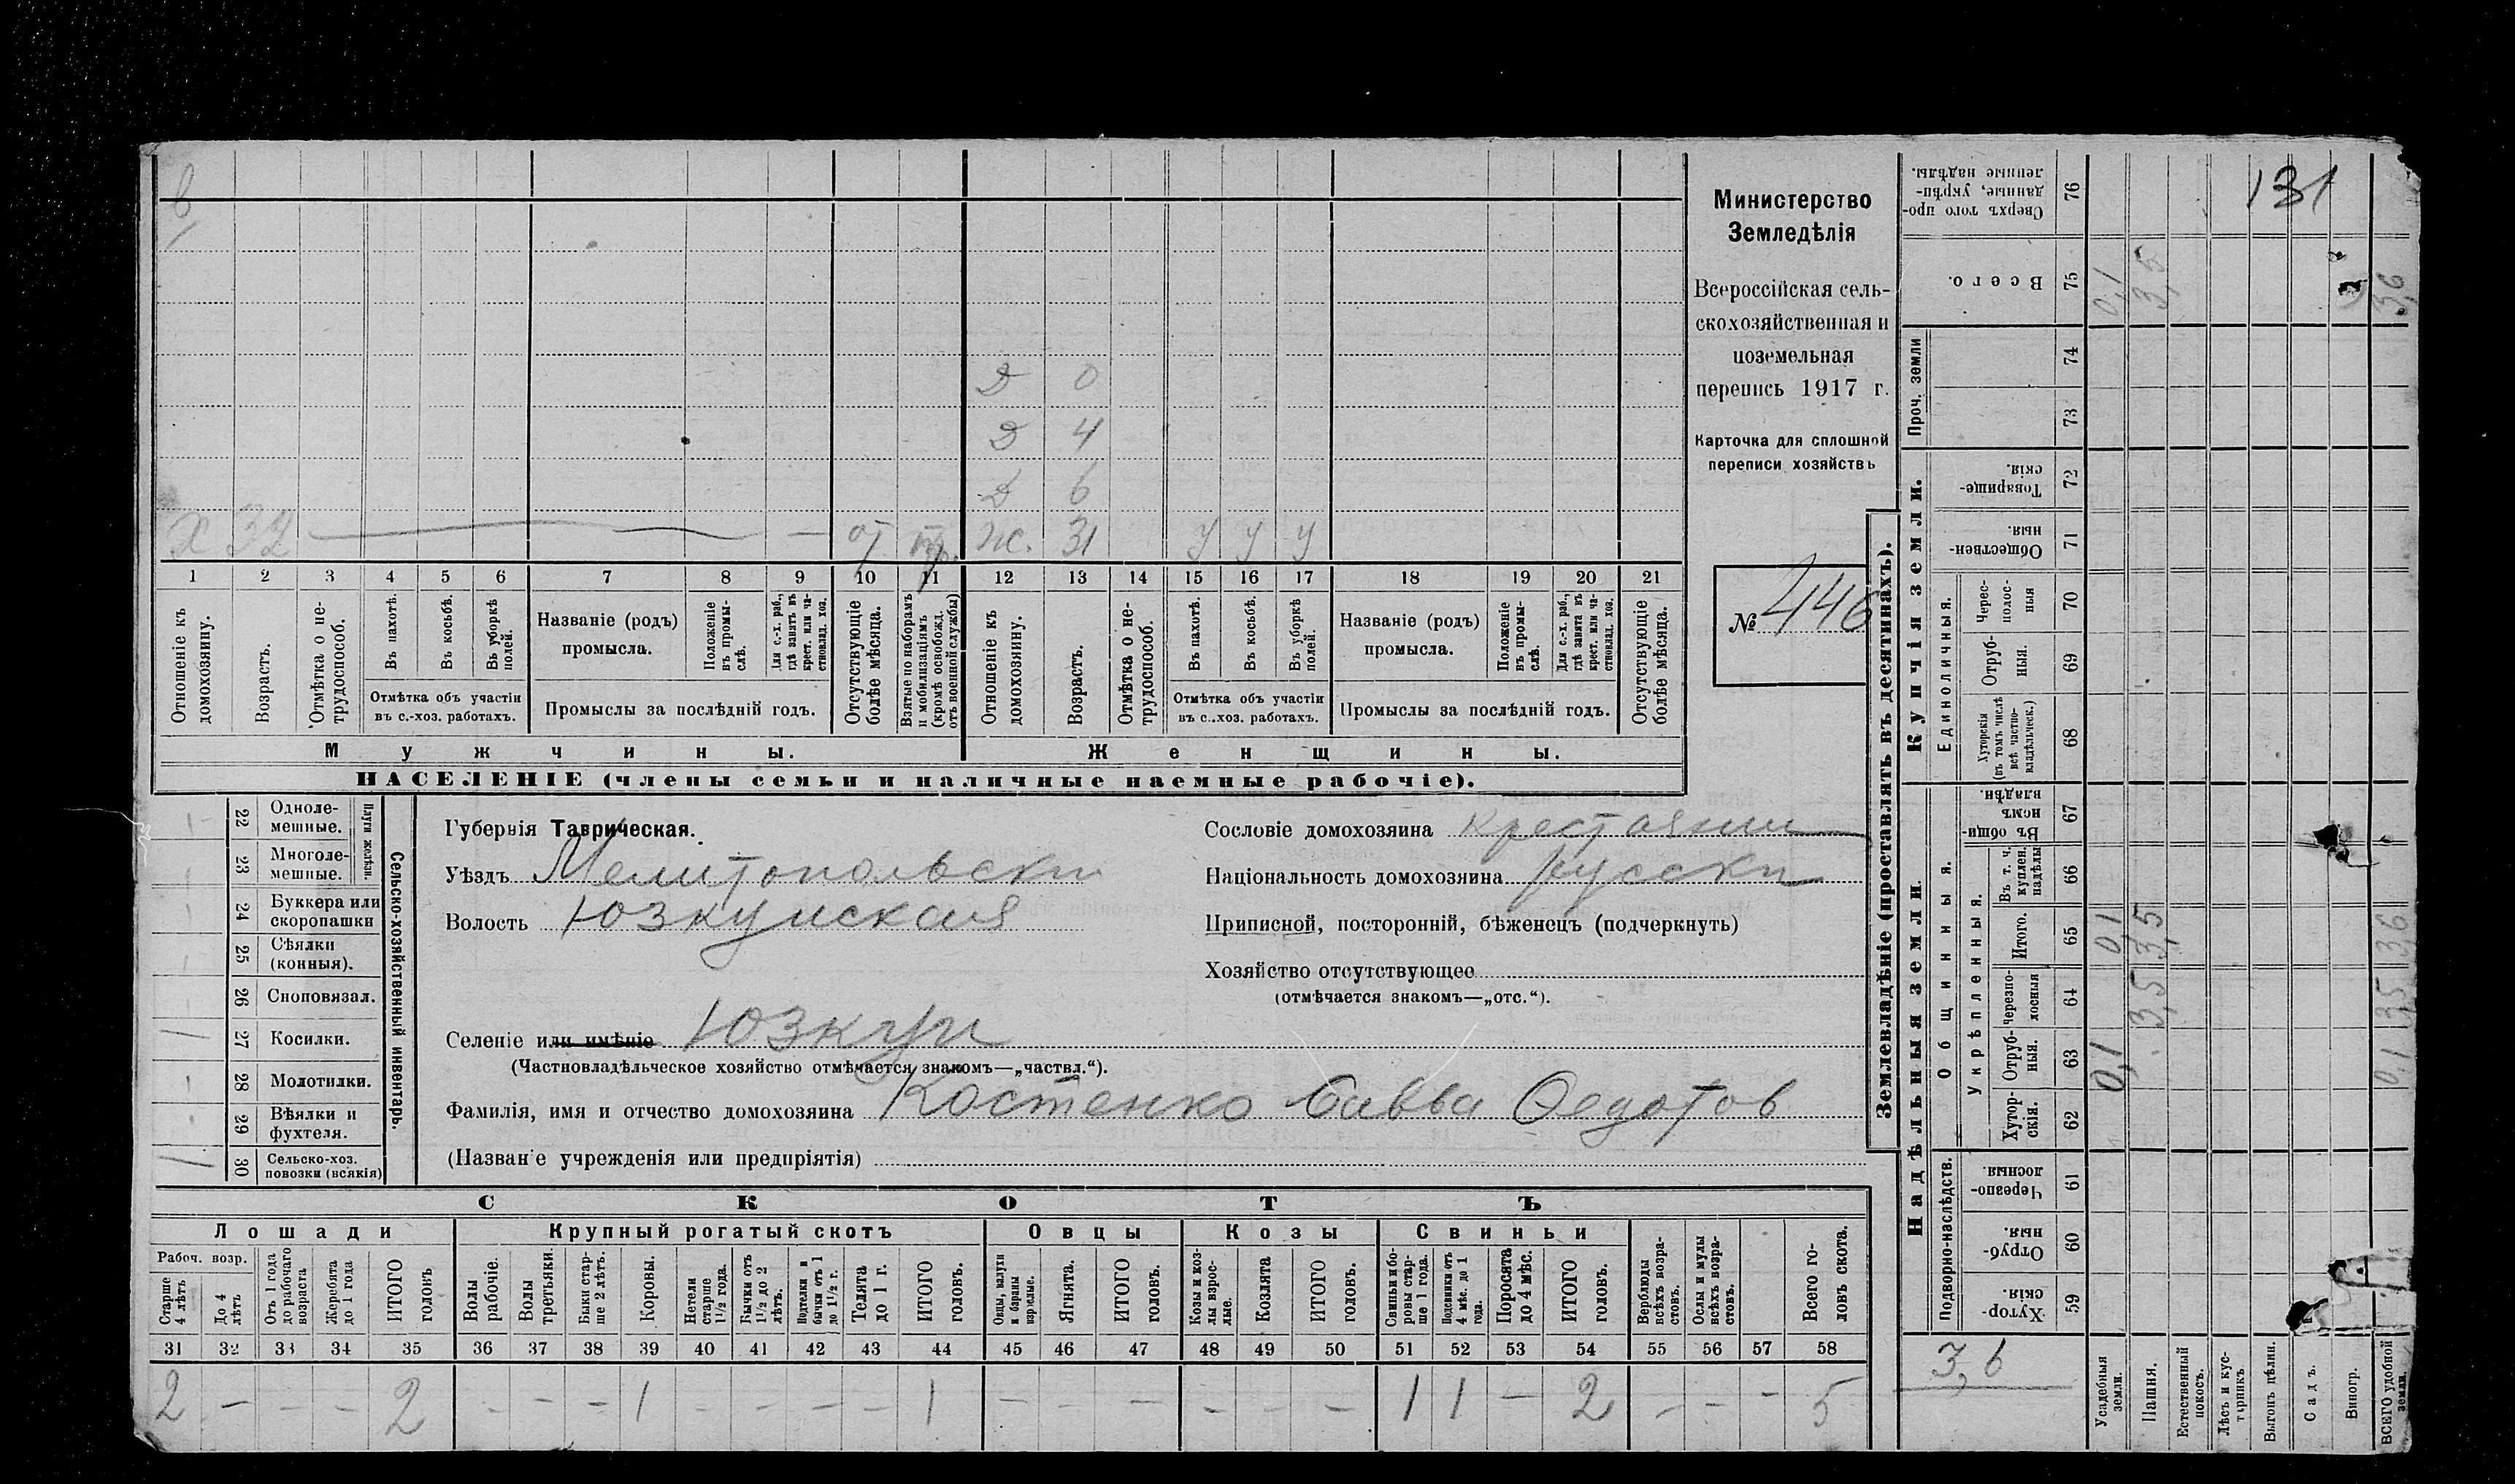 в
Д 0
Д 4
Д 6
Х 32 — — — от тр. Ж. 31 у у у
1 2 3 4 5 6 7 8 9 10 11 12 13 14 15 16 17 18 19 20 21
Отношеніе къ домохозяину.
Возрастъ.
Отмѣтка о нетрудоспособ.
Въ пахотѣ.
Въ косьбѣ.
Въ уборкѣ полей.
Отмѣтка объ участіи въ с.-хоз. работахъ.
Названіе (родъ) промысла.
Положеніе въ промыслѣ.
Для с.-х. раб., гдѣ занятъ въ крест. или частновлад. хоз.
Промыслы за послѣдній годъ.
Отсутствующіе болѣе мѣсяца.
Взятые по наборамъ и мобилизаціямъ (кромѣ освобожд. отъ военной службы)
Отношеніе къ домохозяину.
Возрастъ.
Отмѣтка о нетрудоспособ.
Въ пахотѣ.
Въ косьбѣ.
Въ уборкѣ полей.
Отмѣтка объ участіи въ с.-хоз. работахъ.
Названіе (родъ) промысла.
Положеніе въ промыслѣ.
Для с.-х. раб., гдѣ занята въ крест. или частновлад. хоз.
Промыслы за послѣдній годъ.
Отсутствующіе болѣе мѣсяца.
Мужчины. Женщины.
НАСЕЛЕНІЕ (члены семьи и наличные наемные рабочіе).
Министерство
Земледѣлія
Всероссійская сель-
скохозяйственная и
поземельная
перепись 1917 г.
Карточка для сплошной
переписи хозяйствъ
№ 446
Сельско-хозяйственный инвентарь.
Плуги желѣзн.
22 Одноле-
мешные.
23 Многоле-
мешные.
24 Буккера или
скоропашки
25 Сѣялки
(конныя).
26 Сноповязал.
1 27 Косилки.
28 Молотилки.
29 Вѣялки и
фухтеля.
1 30 Сельско-хоз.
повозки (всякія)
Губернія Таврическая.
Уѣздъ Мелитопольски
Волость Юзкуйская
Селеніе или имѣніе Юзкуи
(Частновладѣльческое хозяйство отмѣчается знакомъ—„частвл.“).
Фамилія, имя и отчество домохозяина Костенко Савва Федотов
(Названіе учрежденія или предпріятія)
Сословіе домохозяина крестьянин
Національность домохозяина русски
Приписной, посторонній, бѣженецъ (подчеркнуть)
Хозяйство отсутствующее
(отмѣчается знакомъ—„отс.“).
СКОТЪ
Лошади Крупный рогатый скотъ Овцы Козы Свиньи
Рабоч. возр.
Старше 4 лѣтъ
До 4 лѣтъ
Отъ 1 года до рабочаго возраста
Жеребята до 1 года
ИТОГО головъ
Волы рабочіе.
Волы третьяки.
Быки старше 2 лѣтъ.
Коровы.
Нетели старше 1½ года.
Бычки отъ 1½ до 2 лѣтъ.
Подтелки и бычки отъ 1 до 1½ г.
Телята до 1 г.
ИТОГО головъ.
Овцы, валухи и бараны взрослые.
Ягнята.
ИТОГО головъ.
Козы и козлы взрослые.
Козлята
ИТОГО головъ.
Свиньи и боровы старше 1 года.
Подсвинки отъ 4 мѣс. до 1 года.
Поросята до 4 мѣс.
ИТОГО головъ.
Верблюды всѣхъ возрастовъ.
Ослы и мулы всѣхъ возрастовъ.
Всего головъ скота.
31 32 33 34 35 36 37 38 39 40 41 42 43 44 45 46 47 48 49 50 51 52 53 54 55 56 57 58
2 – – – 2 – – – 1 – – – – 1 – – – – – – 1 1 – 2 – – – 5
Землевладѣніе (проставлять въ десятинахъ).
Купчія земли.
Надѣльныя земли.
131
Сверхъ того проданные, укрѣпленные надѣлы. 76
Всего. 75 0,1 3,5 3,6
Проч. земли
74
73
Товарищескія. 72
Общественныя. 71
Единоличныя.
Чересполосныя 70
Отрубныя. 69
Хуторскія (въ томъ числѣ всѣ частновладѣльческ.) 68
Общинныя.
Въ общинномъ владѣн. 67
Укрѣпленныя.
Въ т. ч. куплен. надѣлы 66
Итого. 65 0,1 3,5 3,6
Черезполосныя 64 3,5 3,5
Отрубныя. 63 0,1 0,1
Хуторскія. 62
Подворно-наслѣдств.
Черезполосныя. 61
Отрубныя. 60
Хуторскія. 59
3,6
Усадебныя земли.
Пашня.
Естественный покосъ.
Лѣсъ и кустарникъ.
Выгонъ цѣлин.
Садъ.
Виногр.
ВСЕГО удобной земли.